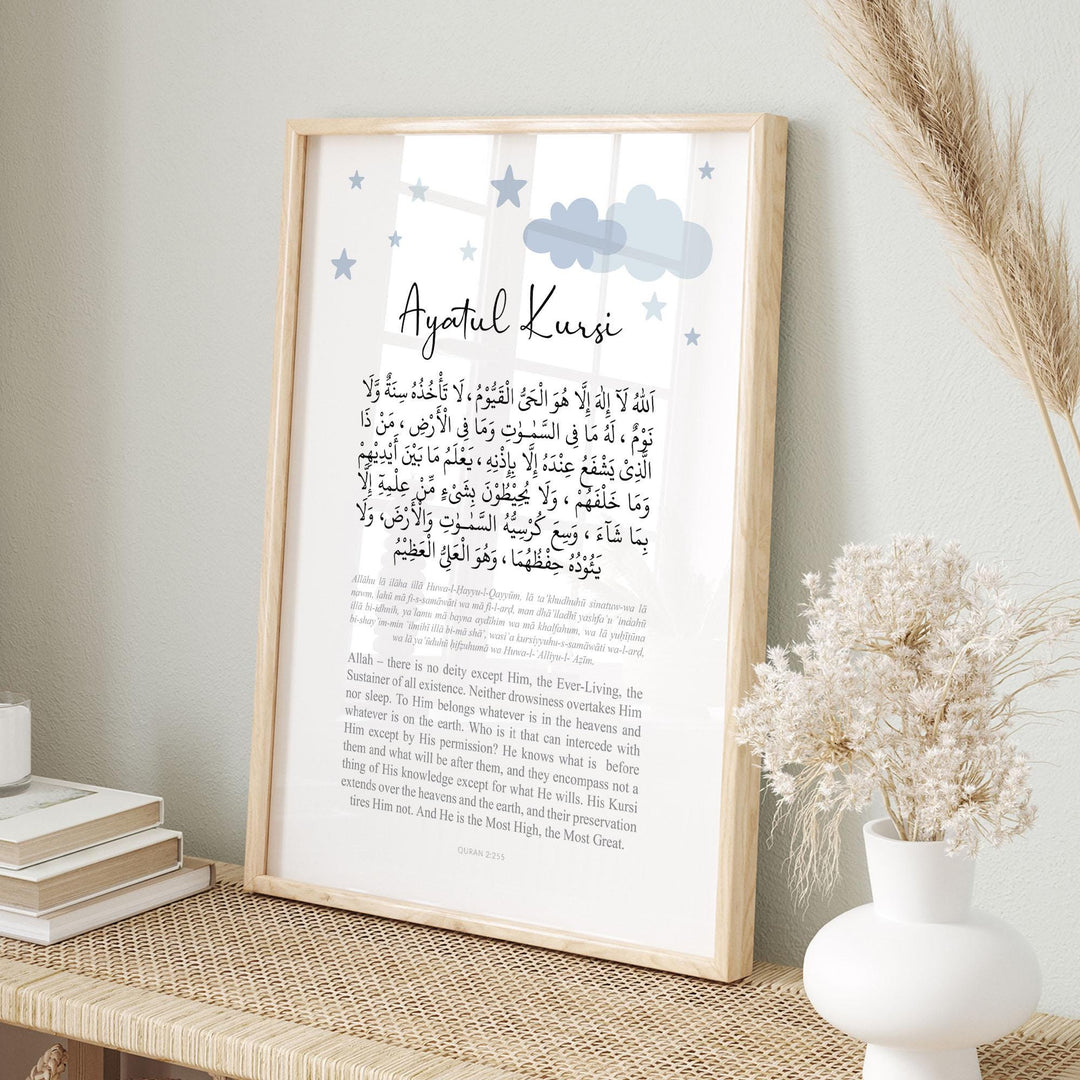 Ayatul Kursi
اَللّٰهُ لَآ إِلٰهَ إِلَّا هُوَ الْحَيُّ الْقَيُّوْمُ ، لَا تَأْخُذُهُ سِنَةٌ وَّلَا
نَوْمٌ ، لَهُ مَا فِى السَّمٰوٰتِ وَمَا فِى الْأَرْضِ ، مَنْ ذَا
الَّذِىْ يَشْفَعُ عِنْدَهُ إِلَّا بِإِذْنِهِ ، يَعْلَمُ مَا بَيْنَ أَيْدِيْهِمْ
وَمَا خَلْفَهُمْ ، وَلَا يُحِيْطُوْنَ بِشَىْءٍ مِّنْ عِلْمِهٓ إِلَّا
بِمَا شَآءَ ، وَسِعَ كُرْسِيُّهُ السَّمٰوٰتِ وَالْأَرْضَ، وَلَا
يَئُوْدُهُ حِفْظُهُمَا ، وَهُوَ الْعَلِىُّ الْعَظِيْمُ
Allāhu lā ilāha illā Huwa-l-Ḥayyu-l-Qayyūm, lā ta'khudhuhū sinatuw-wa lā
nawm, lahū mā fi-s-samāwāti wa mā fi-l-arḍ, man dhā'iladhī yashfa'u 'indahū
illā bi-idhnih, ya lamu mā bayna aydīhim wa mā khalfahum, wa lā yuḥīṭūna
bi-shay'im-min 'ilmihī illā bi-mā shā', wasi'a kursiyyuhu-s-samāwāti wa-l-arḍ,
wa lā ya'ūduhū ḥifẓuhumā wa Huwa-l-'Alliyu-l-'Aẓīm.
Allah – there is no deity except Him, the Ever-Living, the
Sustainer of all existence. Neither drowsiness overtakes Him
nor sleep. To Him belongs whatever is in the heavens and
whatever is on the earth. Who is it that can intercede with
Him except by His permission? He knows what is before
them and what will be after them, and they encompass not a
thing of His knowledge except for what He wills. His Kursi
extends over the heavens and the earth, and their preservation
tires Him not. And He is the Most High, the Most Great.
QURAN 2:255